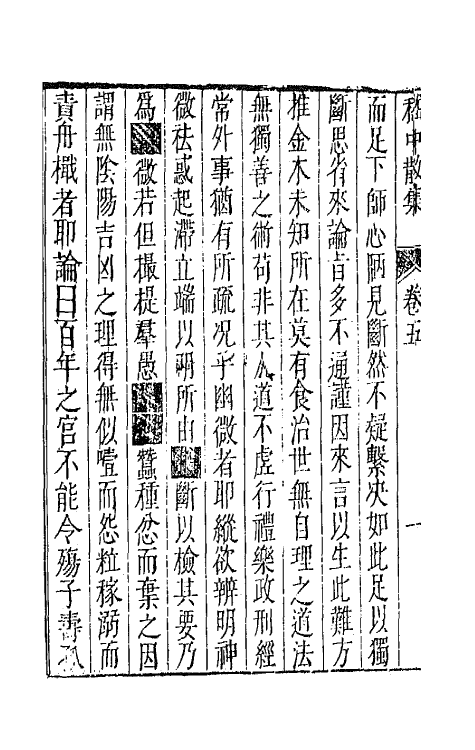 嵇中散集　卷五　一
而足下師心陋見斷然不疑繫决如此足以獨
斷思省來論旨多不通謹因來言以生此難方
推金木未知所在莫有食治世無自理之道法
無獨善之術苟非其人道不虛行禮樂政刑經
常外事猶有所疏况乎幽微者耶縱欲辨明神
微祛惑起滯立端以明所由　斷以檢其要乃
爲　微若但撮提羣愚　　蠶種忿而棄之因
謂無陰陽吉凶之理得無似噎而怨粒稼溺而
責舟檝者耶論曰百年之宮不能令殤子壽孤